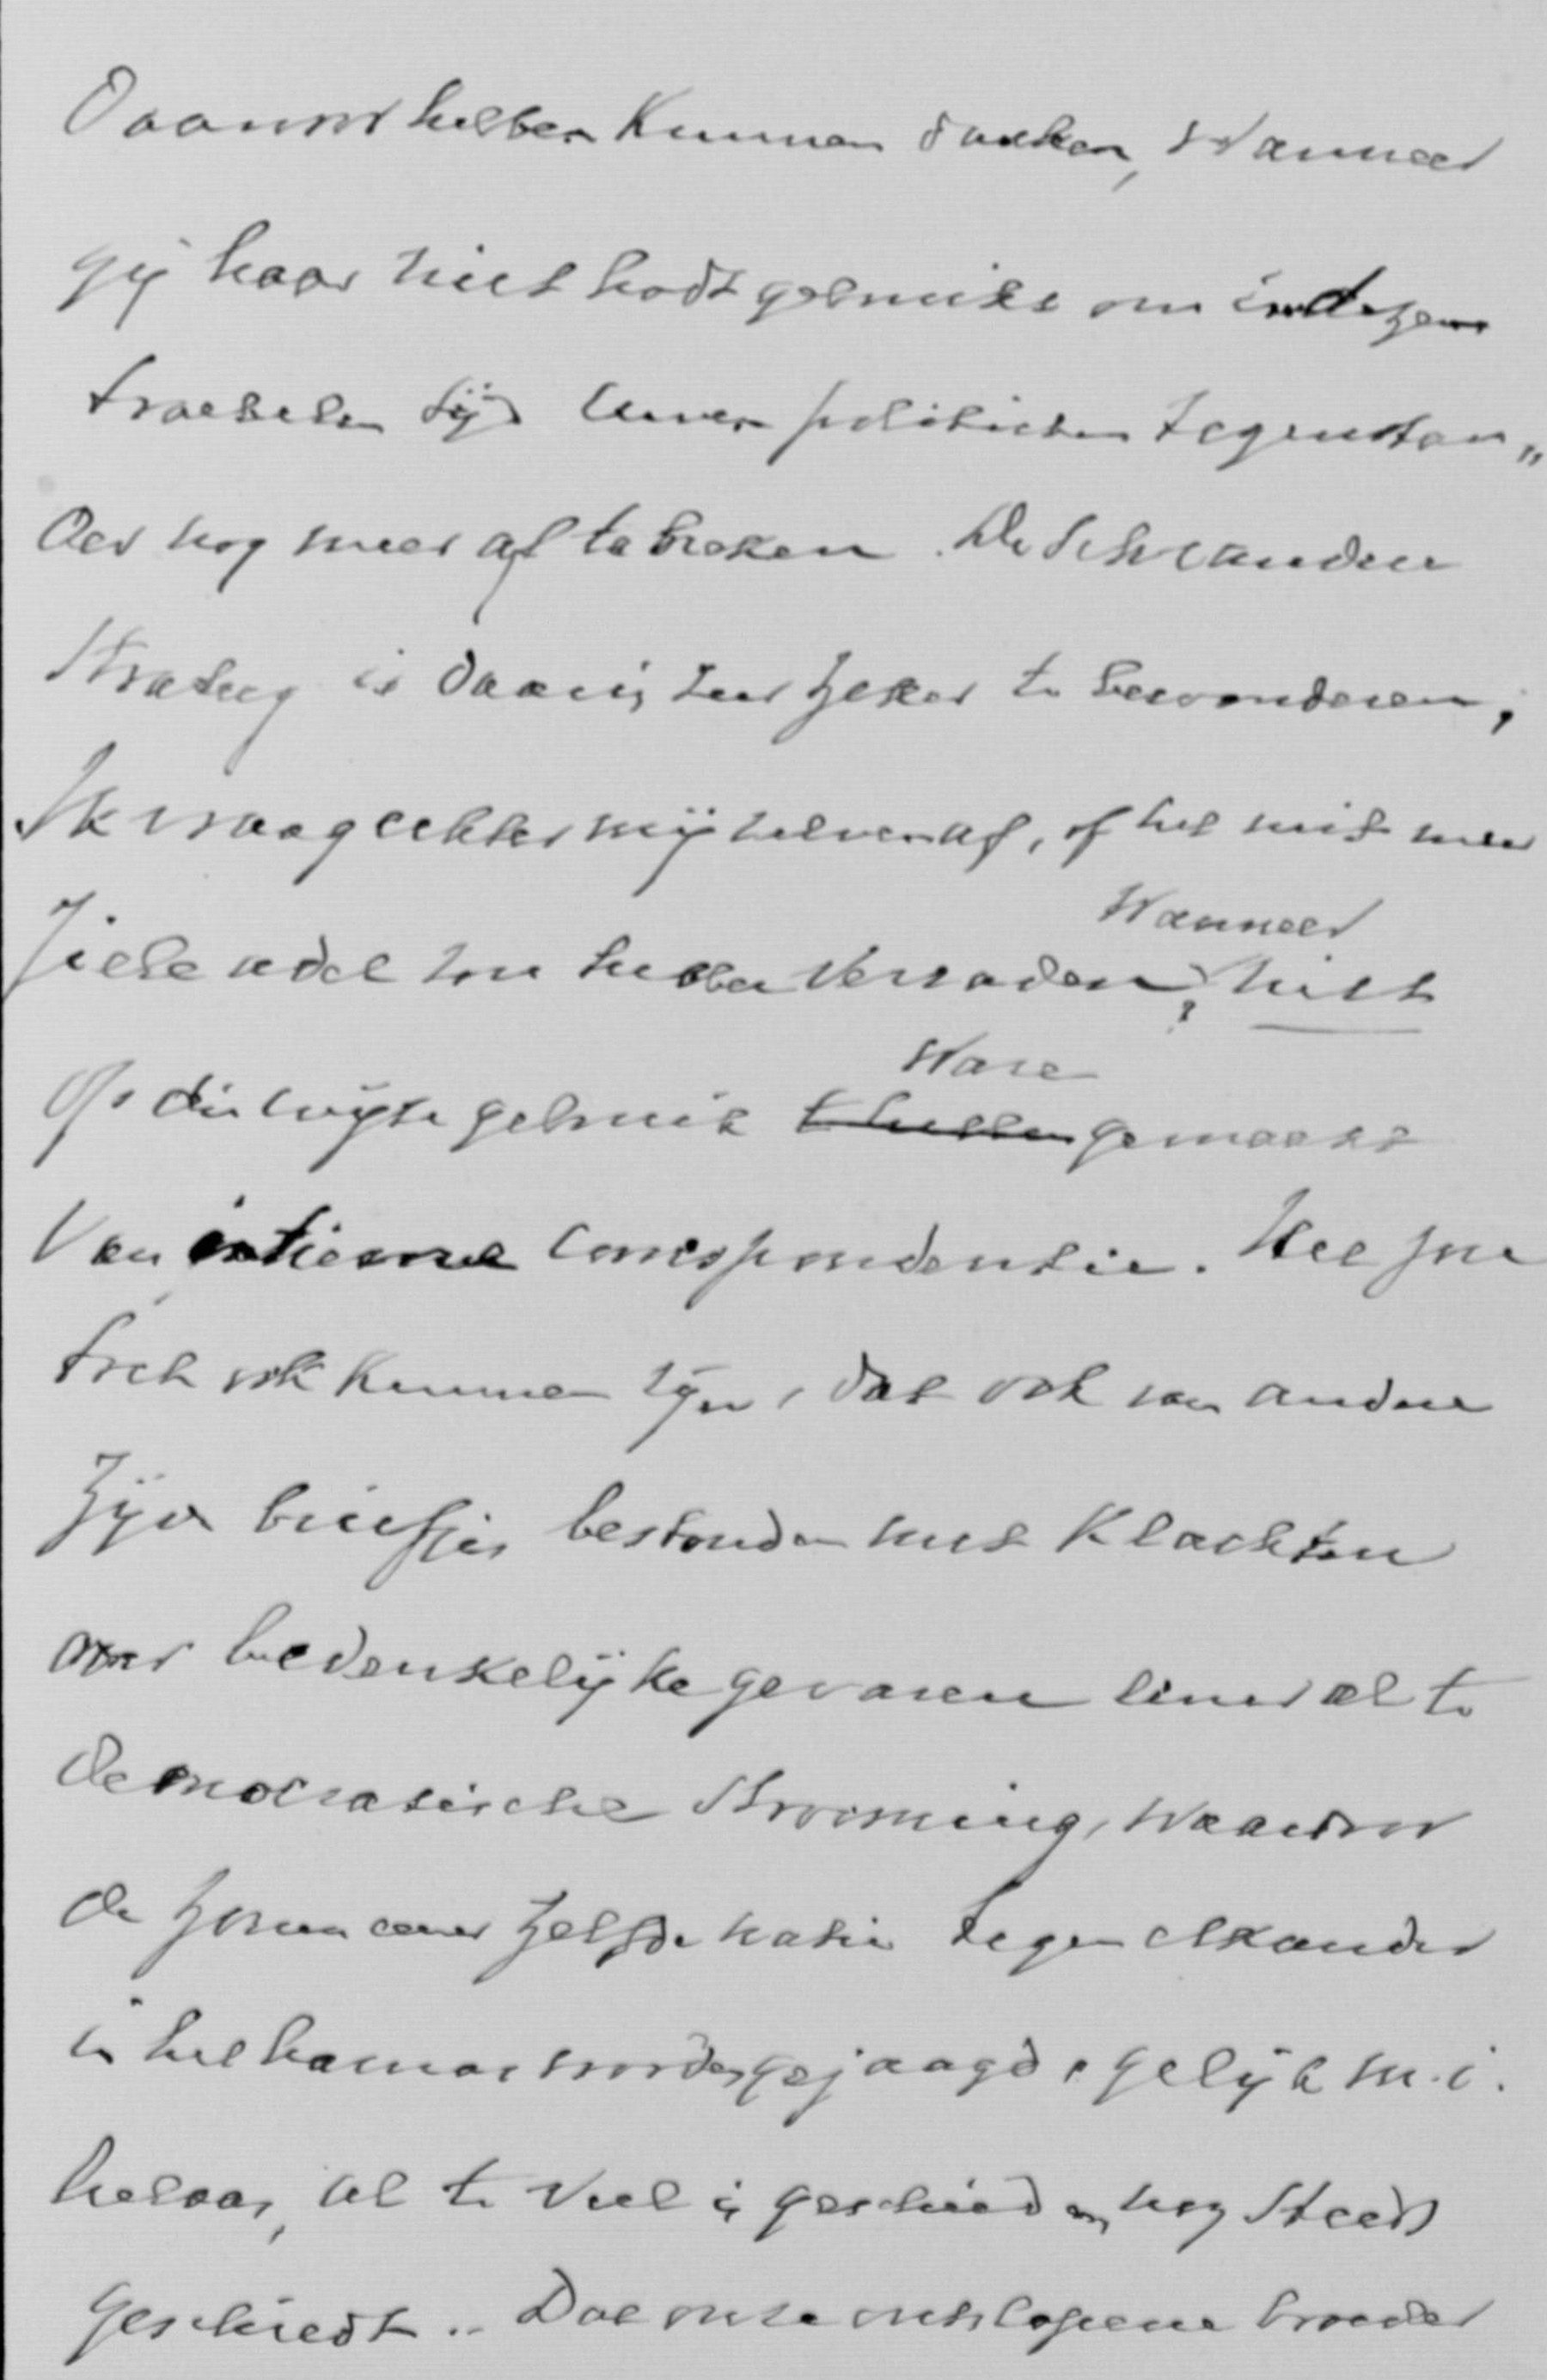 Daarvoor hebben kunnen danken, Wanneer
gij haar niet hadt gebruikt om in dezen
troebelen tijd Uwen politieken tegenstan„
der nog meer af te breken. De Schrandere
Strateeg is daarin zeer zeker te bewonderen,
Ik vraag echter mij zelven af, of het niet meer
Wanneer
Zieleadel zou hebben verraden? niet
Ware
Op die wijze gebruik t hebben gemaakt
Van intieme Correspondentie. Het zou
toch ook kunnen zijn, dat ook van andere
Zijde briefjes bestonden met Klachten
over bedenkelijke gevaren eener al te
democratische Strooming, Waardoor
de zonen eener zelfde natie tegen elkander
in het harnas worden gejaagd, gelijk m.i.
helaas, al te veel is geschied en nog Steeds
geschiedt.. Dat onze ontslapene broeder